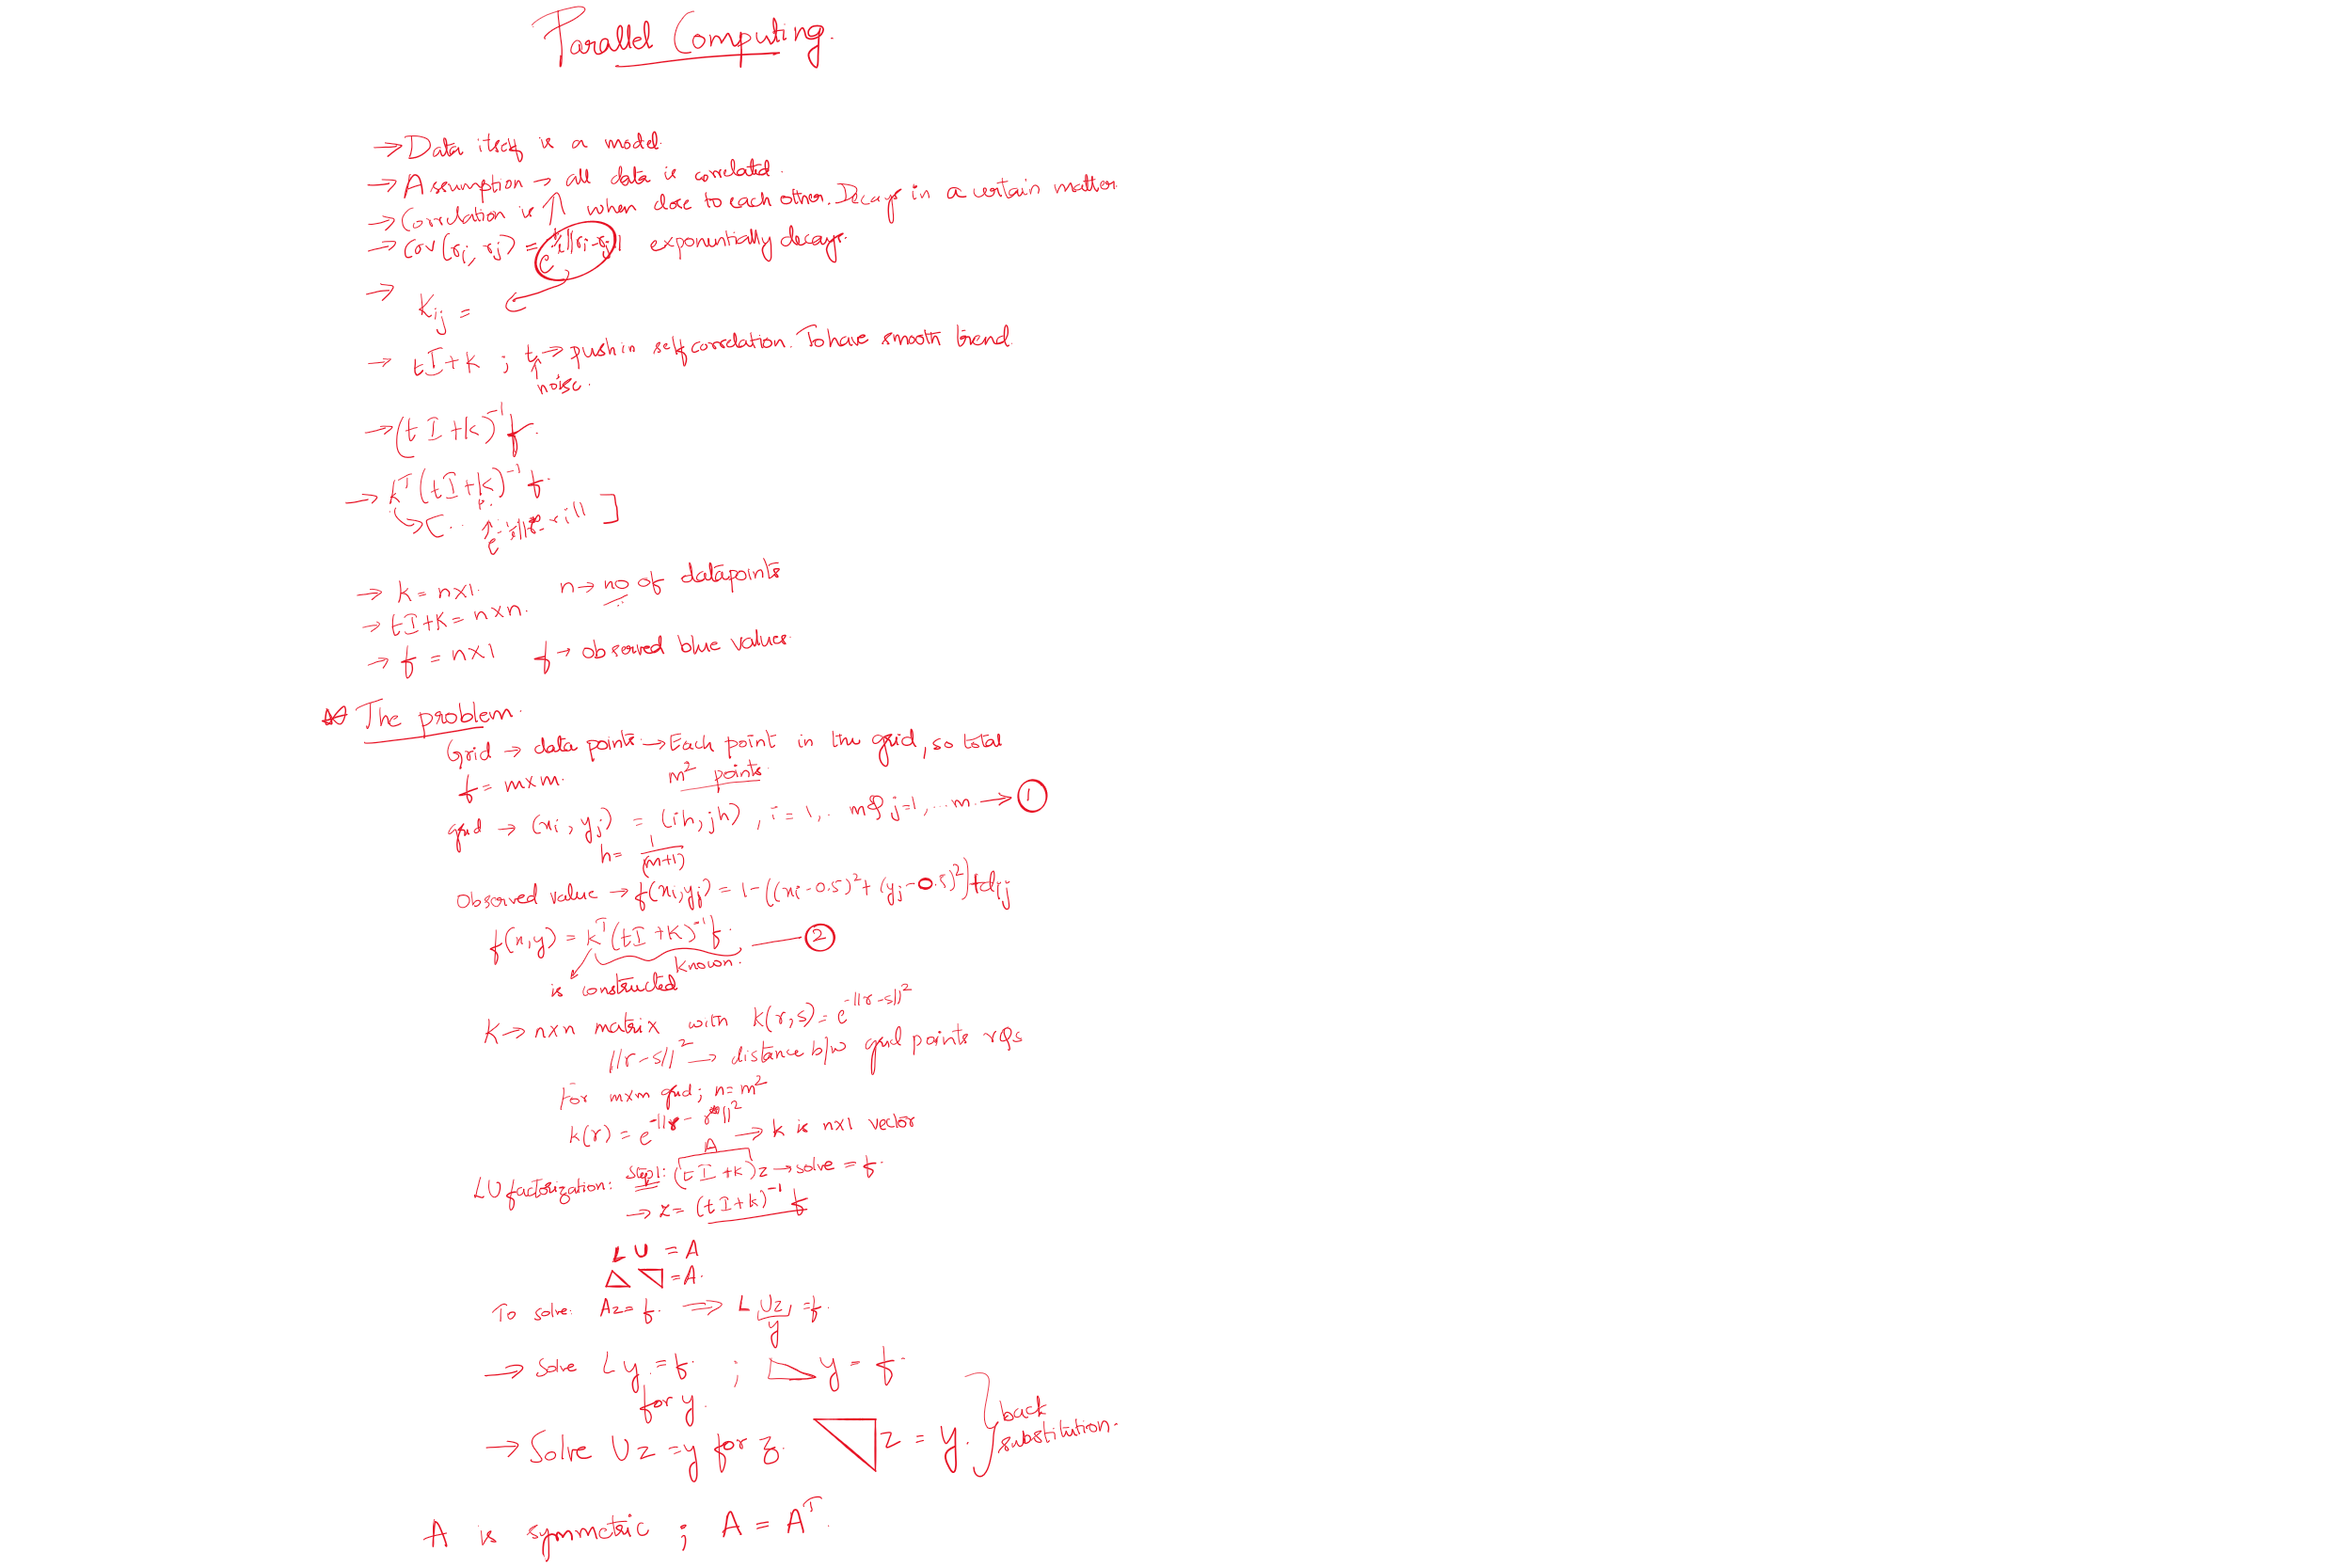 Parallel Computing.
→ Data itself is a model.
→ Assumption → all data is correlated.
→ Correlation is ↑ when close to each other. Decays in a certain matter.
→ Cov(ri, rj) = e^½||ri-rj|| exponentially decays.
→ Kij =
→ tI+K ; t → push in self correlation. To have smooth trend.
↑ noise.
→ (tI+K)⁻¹f.
→ kᵀ(tI+K)⁻¹f.
→ [ . . e^-½|| - ri|| ]
→ k = n×1. n → no of datapoints
→ tI+K = n×n.
→ f = n×1 f → observed blue values.
The problem.
Grid → data points → Each point in the grid, so total
f = m×m. m² points.
grid → (xi, yj) = (ih, jh), i = 1, .. m & j=1, ... m. → ①
h = 1/(m+1)
Observed value → f(xi,yj) = 1-((xi-0.5)²+(yj-0.5)²)+dij
f(x,y) = kᵀ(tI+K)⁻¹f. — ②
known.
is constructed
K → n×n matrix with K(r,s) = e^-||r-s||²
||r-s||² → distance b/w grid points r&s
For m×m grid; n=m²
k(r) = e^-||r - r*||²
→ k is n×1 vector
A
LU factorization: Step1: (tI+K)z → solve = f.
→ z = (tI+K)⁻¹f
L U = A
△ ▽ = A.
To solve: Az=f. ⇒ L Uz = f.
y
→ Solve Ly = f. ; ◺ y = f.
for y.
→ Solve Uz = y for z. ◥ z = y. } back
substitution.
A is symmetric ; A = Aᵀ.